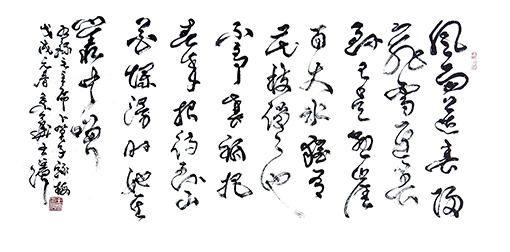 风雨送春归
飞雪迎春
到已是悬崖
百丈冰犹有
花枝俏俏也
不争春只把
春来报待到山
花烂漫时她在
丛中笑
毛主席卜算子咏梅
戊戌元春